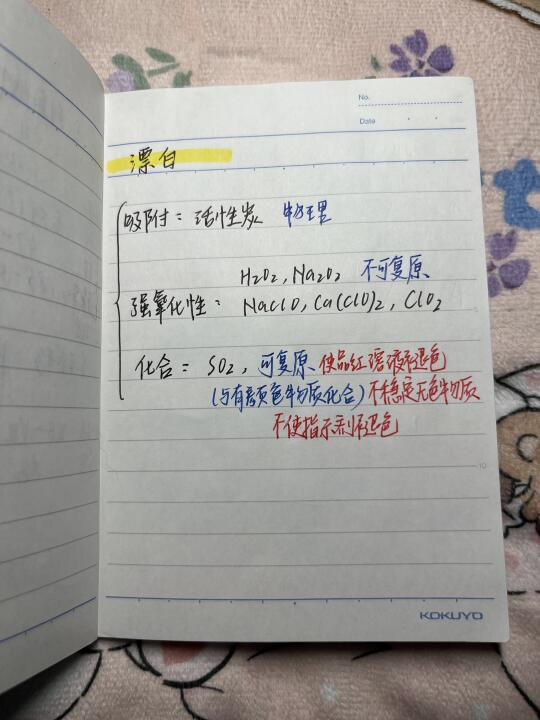 No.
Date
漂白
吸附：活性炭 物理
H2O2, Na2O2 不可复原
强氧化性： NaClO, Ca(ClO)2, ClO2
化合：SO2, 可复原 使品红溶液褪色
(与有离颜色物质化合) 不稳定无色物质
不使指示剂褪色
10
KOKUYO